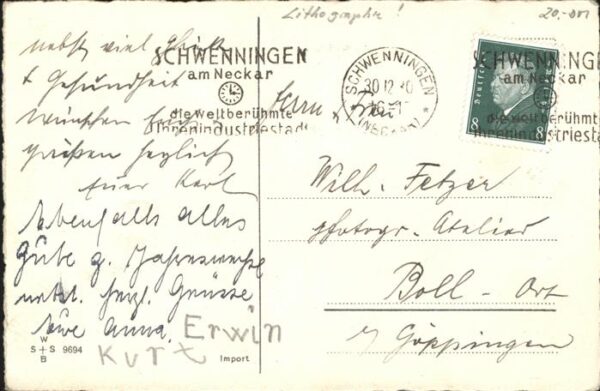 Lithographie!
20.-
nebst viel Glück
+ Gesundheit
wünschen
grüßen herzlich
Euer Karl
Ebenfalls alles
Gute z. Jahreswechsel
nebst. herzl. Grüsse
Eure Anna.
Erwin
Kurt
W
S+S 9694
B
Import
SCHWENNINGEN
am Neckar
die weltberühmte
Uhrenindustriestadt
SCHWENNINGEN
30.12.30
(NECKAR)
Deutsches
8 8
SCHWENNINGEN
am Neckar
die weltberühmte
Uhrenindustriestadt
Herrn u. Frau
Wilh. Fetzer
photogr. Atelier
Boll - Ort
b/ Göppingen